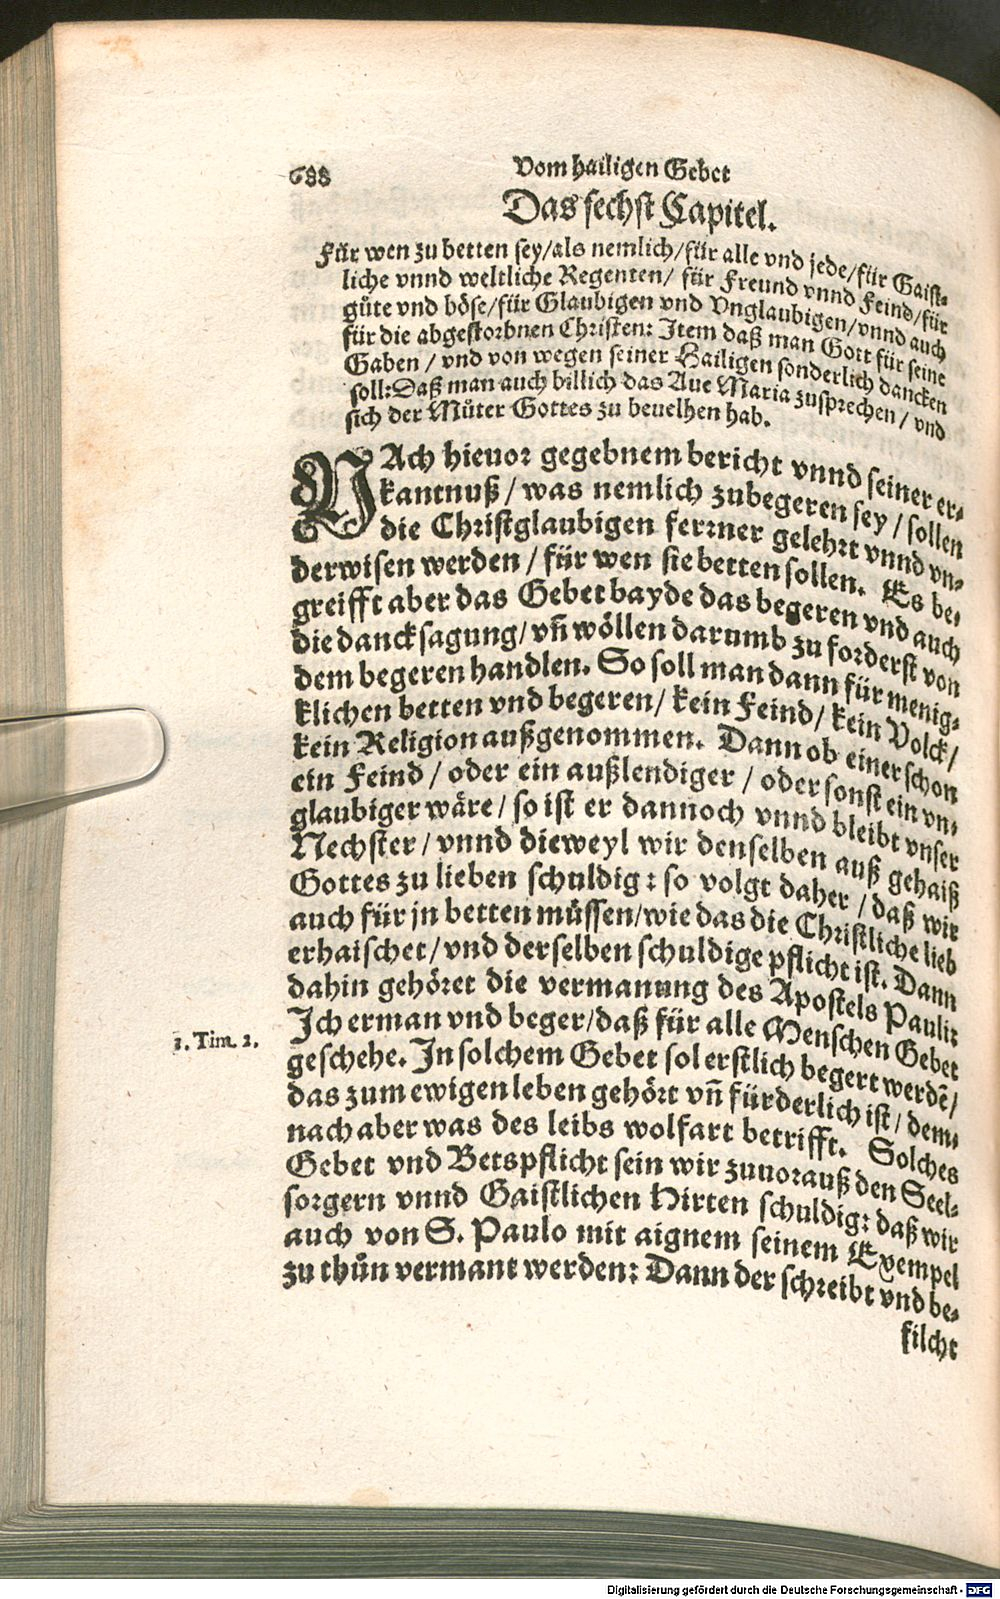 688
Vom hailigen Gebet
Das sechst Capitel.
Für wen zu betten sey/als nemlich/für alle vnd jede/für Gaist-
liche vnnd weltliche Regenten/ für Freund vnnd Feind/für
gůte vnd böse/für Glaubigen vnd Vnglaubigen/vnnd auch
für die abgestorbnen Christen: Item daß man Gott für seine
Gaben / vnd von wegen seiner Hailigen sonderlich dancken
soll: Daß man auch billich das Aue Maria zusprechen / vnd
sich der Můter Gottes zu beuelhen hab.
NAch hieuor gegebnem bericht vnnd seiner er-
kantnuß / was nemlich zubegeren sey / sollen
die Christglaubigen ferrner gelehrt vnnd vn-
derwisen werden / für wen sie betten sollen. Es be-
greifft aber das Gebet bayde das begeren vnd auch
die dancksagung/ vñ wöllen darumb zu forderst von
dem begeren handlen. So soll man dann für menig-
klichen betten vnd begeren/ kein Feind/ kein Volck/
kein Religion außgenommen. Dann ob einer schon
ein Feind / oder ein außlendiger / oder sonst ein vn-
glaubiger wäre/ so ist er dannoch vnnd bleibt vnser
Nechster / vnnd dieweyl wir denselben auß gehaiß
Gottes zu lieben schuldig: so volgt daher / daß wir
auch für jn betten müssen/wie das die Christliche lieb
erhaischet/vnd derselben schuldige pflicht ist. Dann
dahin gehöret die vermanung des Apostels Pauli:
Ich erman vnd beger/daß für alle Menschen Gebet
1. Tim. 2.
geschehe. In solchem Gebet sol erstlich begert werdẽ/
das zum ewigen leben gehört vñ fürderlich ist / dem-
nach aber was des leibs wolfart betrifft. Solches
Gebet vnd Betspflicht sein wir zuuorauß den Seel-
sorgern vnnd Gaistlichen Hirten schuldig: daß wir
auch von S. Paulo mit aignem seinem Exempel
zu thůn vermant werden: Dann der schreibt vnd be-
filcht
Digitalisierung gefördert durch die Deutsche Forschungsgemeinschaft - DFG